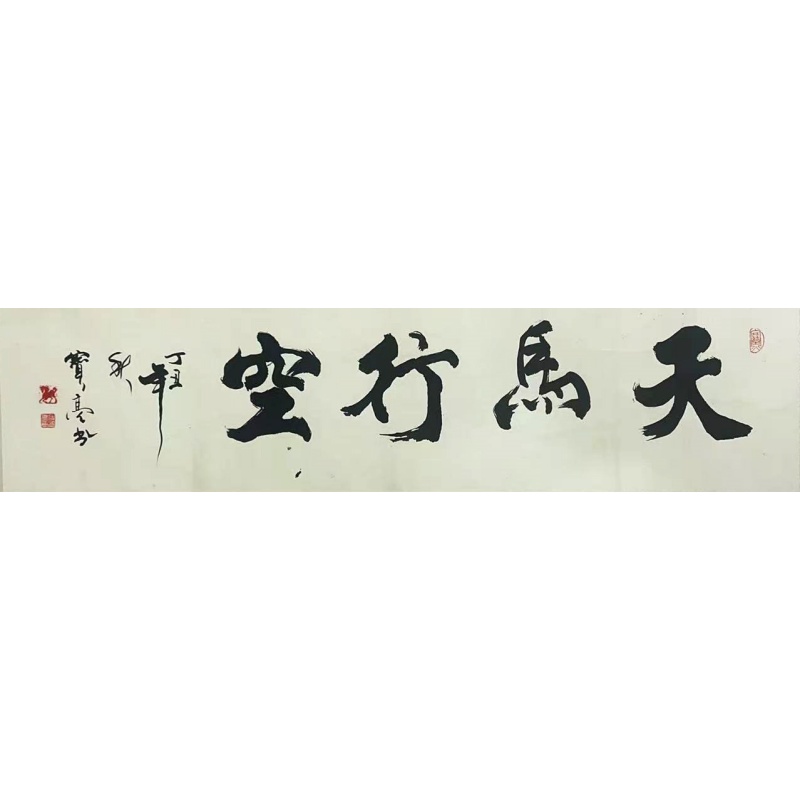 天馬行空
丁丑年
秋
寶亮书